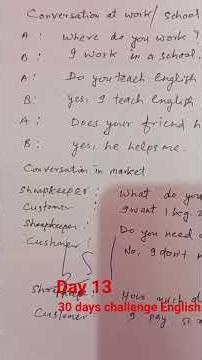 Conversation at work/ school
A : Where do you work ?
B : I work in a school.
A : Do you teach English
B : Yes, I teach English
A : Does your friend h
B : yes, he helps me.
Conversation in market
Shopkeeper : What do you
Customer : I want 1 kg.
Shopkeeper : Do you need
Customer : No, I don't
Day 13
How much d
30 days challenge English
Customer I pay